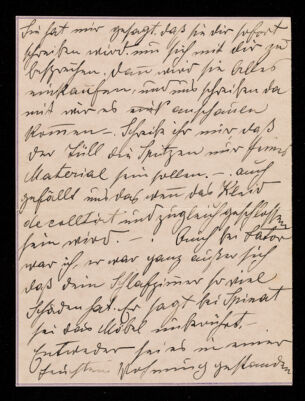 Sie hat mir gesagt, daß sie dir sofort
schreiben wird um sich mit dir zu
besprechen. Dann wird sie Alles
einkaufen, und uns schreiben da
mit wir es anschauen
können –. Schreibe ihr nur daß
der Tüll die Spitzen nur feines
Material sein sollen. –. auch
gefällt uns das wen das Kleid
decolltirt und zugleich geschlossen
sein wird. – . Auch bei
war ich, er war ganz außer sich
daß dein Schlafzimmer so viel
Schaden hat. Er sagt bei Spinat
sei das Möbel unberührt. –
Entweder sei es in einer
feuchten Wohnung gestanden